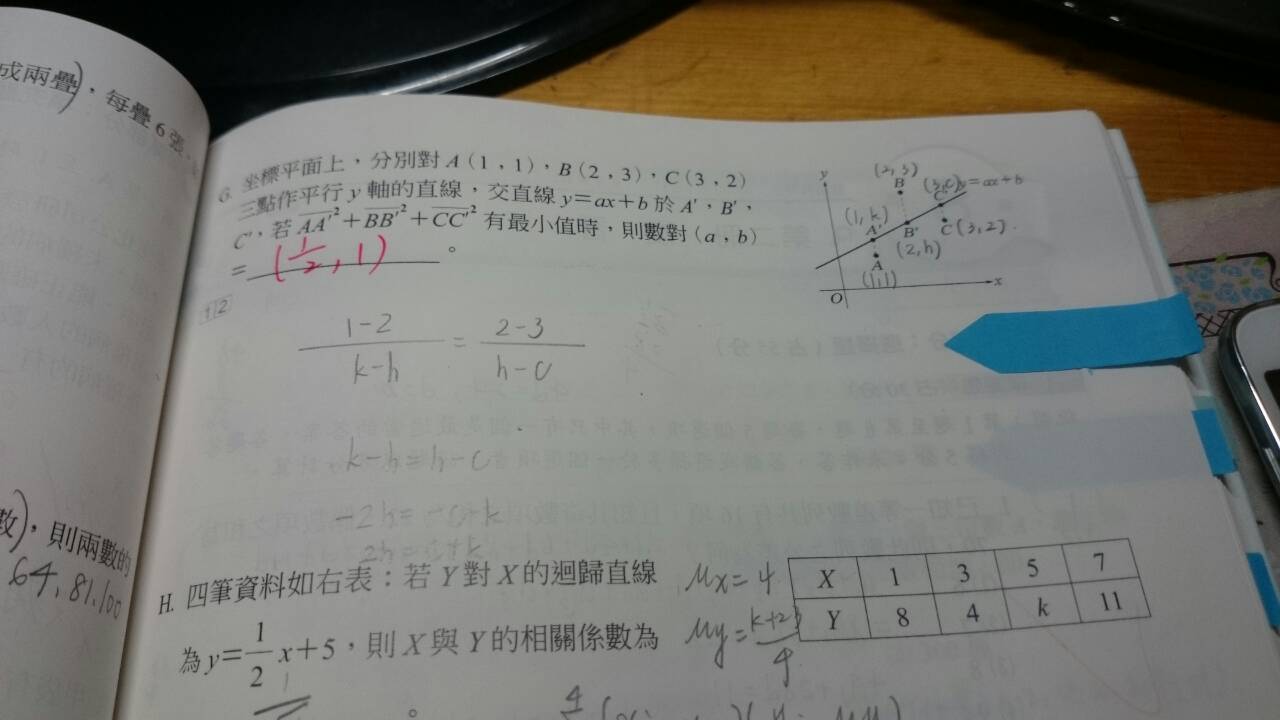 成兩疊)，每疊6張，
數)，則兩數的
64,81,100
G. 坐標平面上，分別對 A(1,1)，B(2,3)，C(3,2)
三點作平行 y 軸的直線，交直線 y=ax+b 於 A'，B'，
C'，若 AA'²+BB'²+CC'² 有最小值時，則數對 (a,b)
= (1/2, 1) 。
112
y
(2,3)
B
y=ax+b
C'
(1,k)
A'
B'
C(3,2)
(2,h)
A
(1,1)
O
x
1-2 / k-h = 2-3 / h-c
k-h=h-c
-2h=-c-k
2h=c+k
H. 四筆資料如右表：若 Y 對 X 的迴歸直線
為 y=1/2 x+5，則 X 與 Y 的相關係數為
。
μx=4
μy=k+23/4
X 1 3 5 7
Y 8 4 k 11